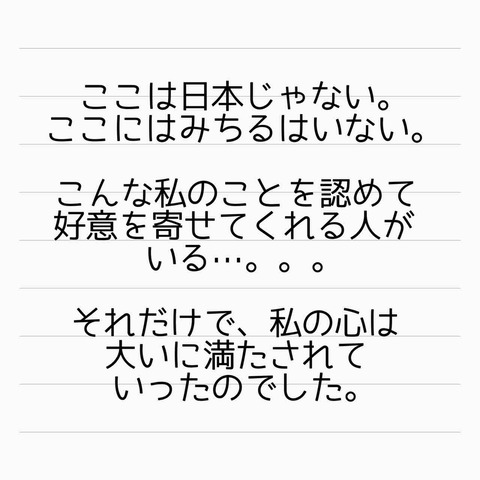 ここは日本じゃない。
ここにはみちるはいない。
こんな私のことを認めて
好意を寄せてくれる人が
いる…。。。
それだけで、私の心は
大いに満たされて
いったのでした。